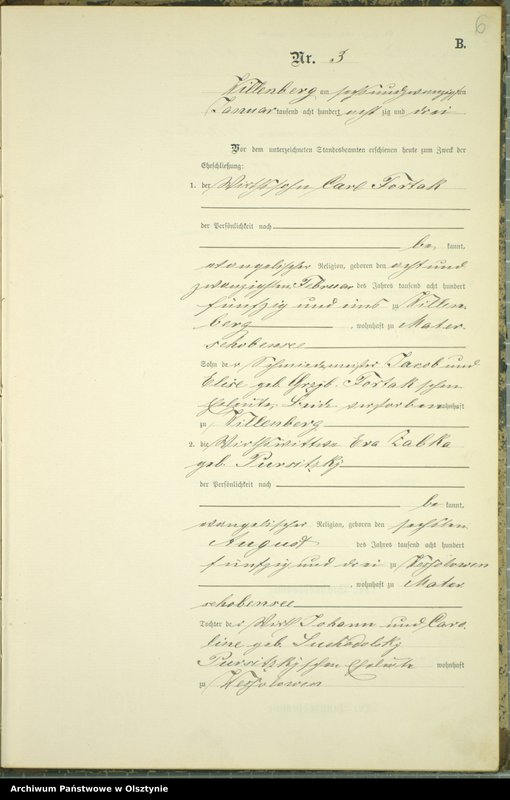 6
B.
Nr. 3
Willenberg am sechsundzwanzigsten
Januar tausend acht hundert achtzig und drei
Vor dem unterzeichneten Standesbeamten erschienen heute zum Zweck der
Eheschließung:
1. der Wirthssohn Carl Tortak
der Persönlichkeit nach
be kannt,
evangelischer Religion, geboren den acht und
zwanzigsten Februar des Jahres tausend acht hundert
fünfzig und eins zu Willen-
berg, wohnhaft zu Mater
schobensee
Sohn der Schmiedemeister Jacob und
geb. Grzyb. Tortak'schen
Eheleute, beide verstorben wohnhaft
zu Willenberg
2. die Wirthswittwe Eva Zabka
geb. Pursitzky
der Persönlichkeit nach
be kannt,
evangelischer Religion, geboren den sechsten
August des Jahres tausend acht hundert
fünfzig und drei zu
, wohnhaft zu Mater
schobensee
Tochter der Wirth Johann und Caro-
line geb. Suchodolsky
Pursitzky'schen Eheleute wohnhaft
zu
Archiwum Państwowe w Olsztynie